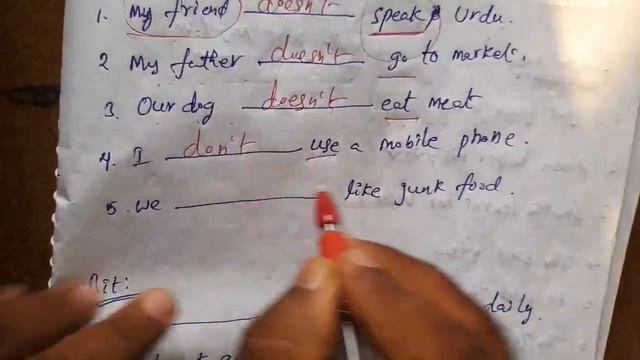 1. My friend doesn't speak Urdu.
2 My father doesn't go to market.
3. Our dog doesn't eat meat
4. I don't use a mobile phone.
5. we ________ like junk food.
daily.